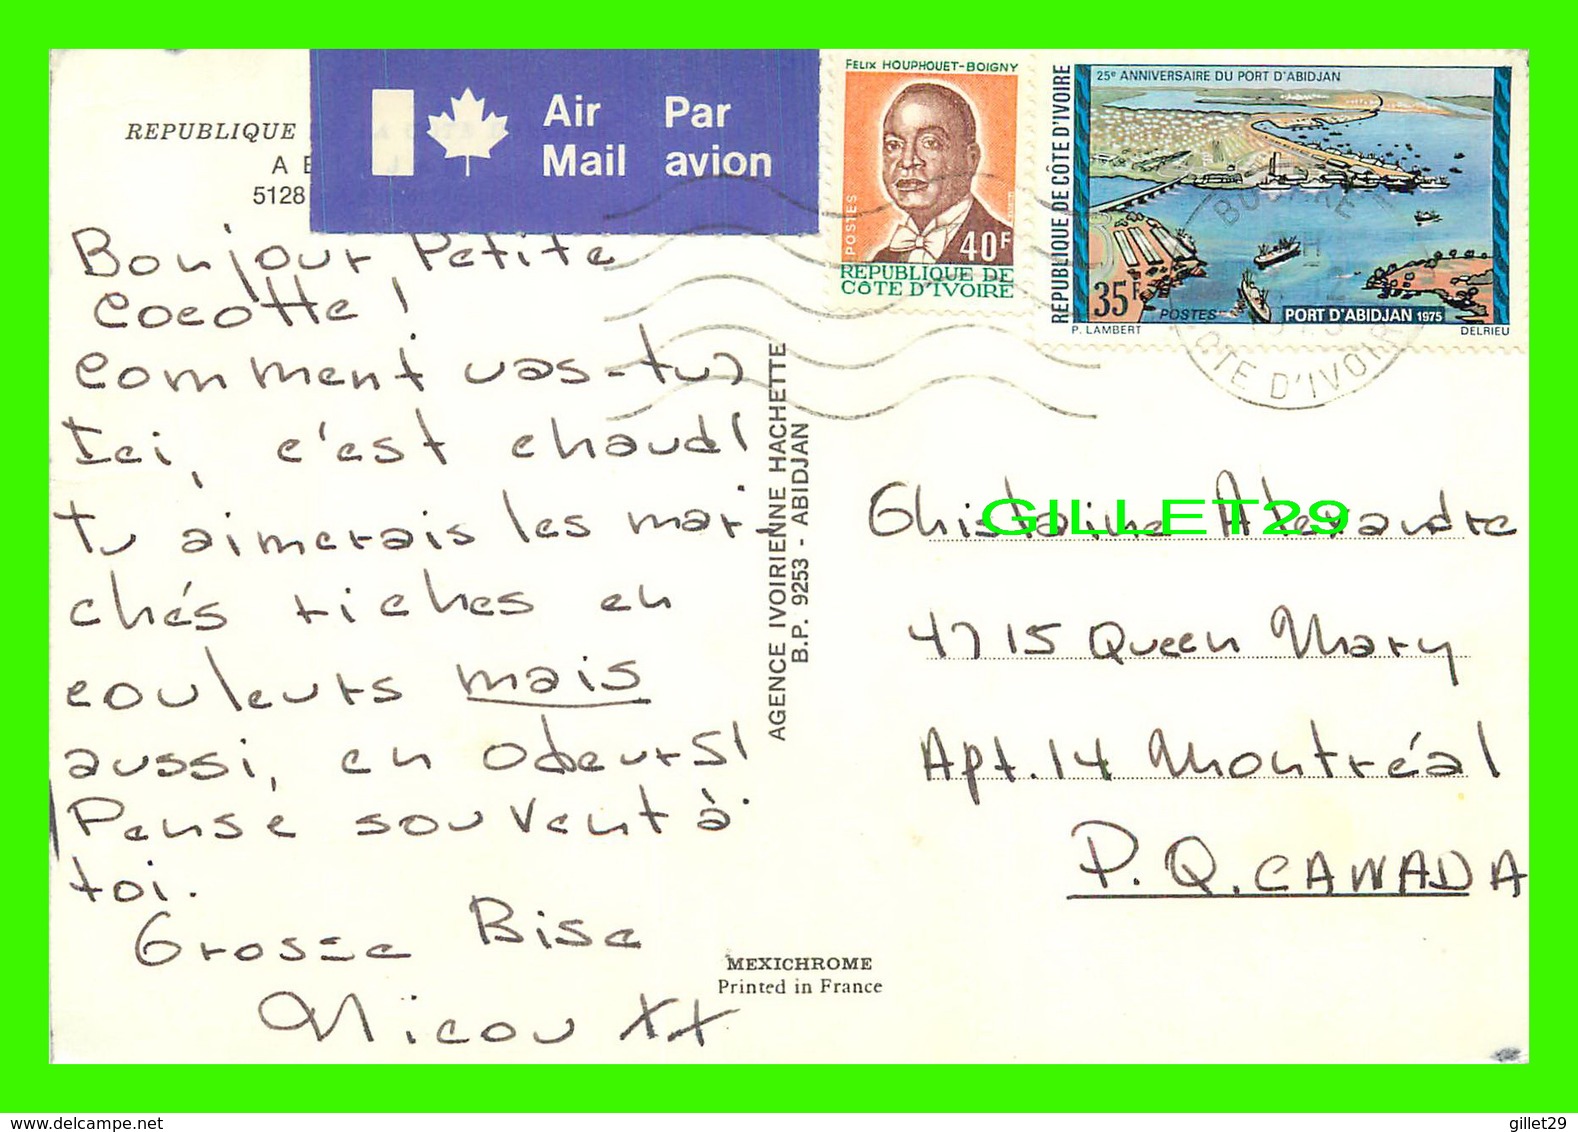 REPUBLIQUE
5128
Air Mail
Par avion
FELIX HOUPHOUET-BOIGNY
POSTES
40F
REPUBLIQUE DE
CÔTE D'IVOIRE
25e ANNIVERSAIRE DU PORT D'ABIDJAN
REPUBLIQUE DE CÔTE D'IVOIRE
35F
POSTES
PORT D'ABIDJAN 1975
P. LAMBERT
DELRIEU
CÔTE D'IVOIRE
Bonjour Petite
cocotte !
Comment vas-tu?
Ici, c'est chaud!
tu aimerais les mar-
chés riches en
couleurs mais
aussi, en odeurs!
Pense souvent à
toi.
Grosse Bise
Nicou xx
AGENCE IVOIRIENNE HACHETTE
B.P. 9253 - ABIDJAN
Ghislaine Alexandre
4715 Queen Mary
Apt. 14 Montréal
P.Q. CANADA
GILLET29
MEXICHROME
Printed in France
www.delcampe.net
gillet29